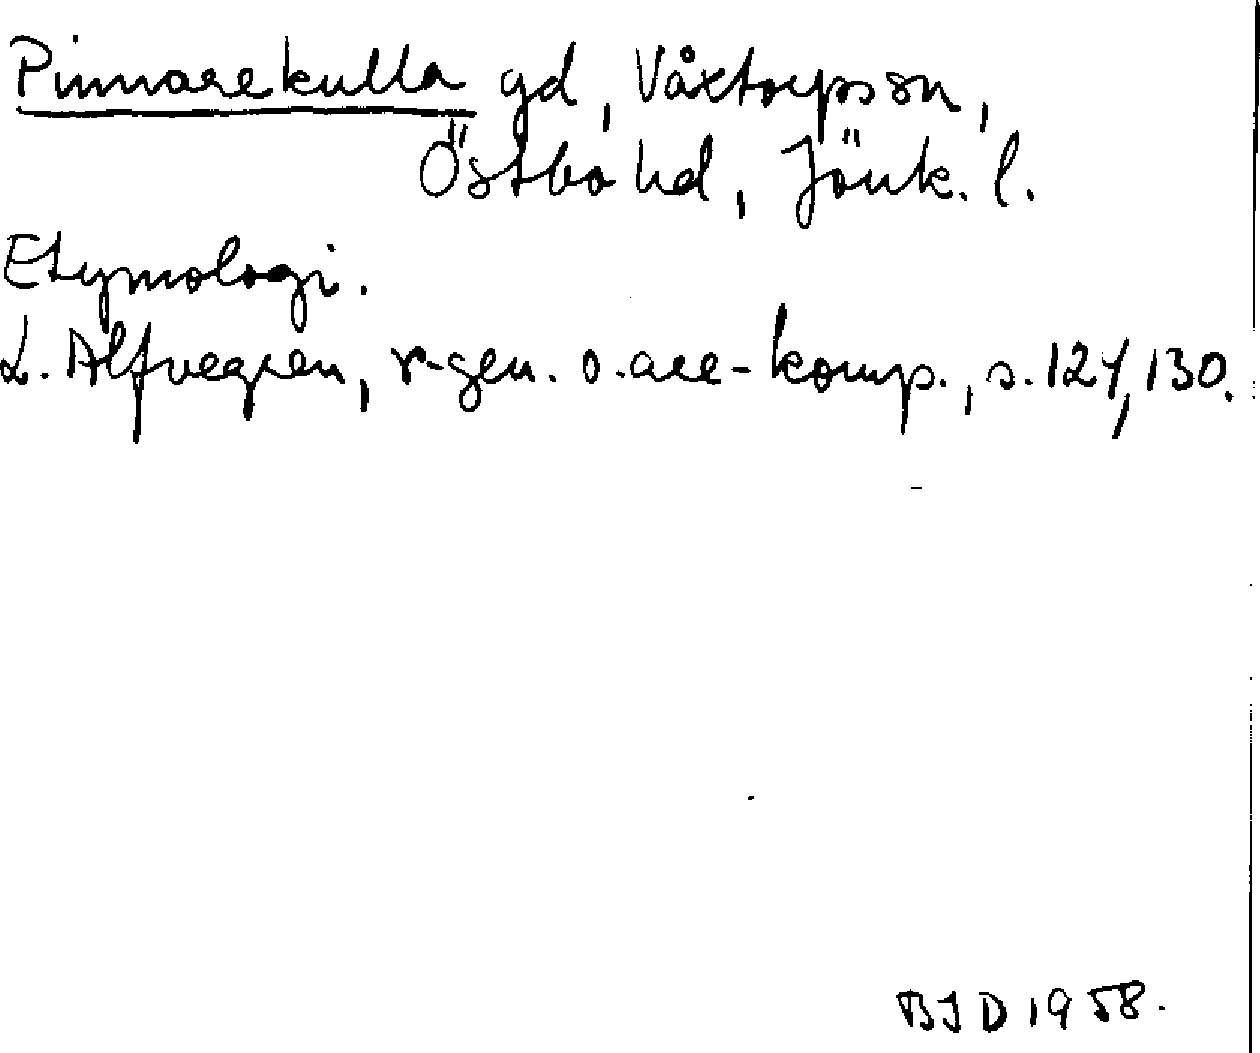 Pinnarekulla gd, Våxtorps sn,
Östbo hd, Jönk. l.
Etymologi.
L. Alfvegren, r-gen. o. are-komp., s. 124, 130.
BJD 1958.